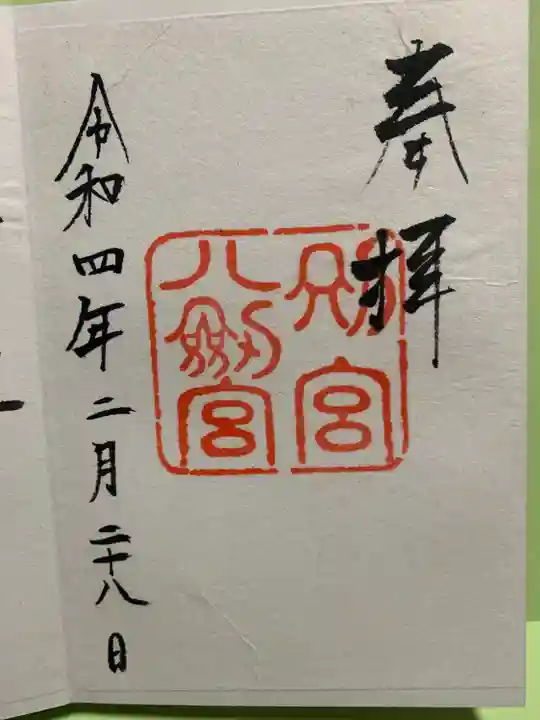 奉拝
別宮
八剱宮
令和四年二月二十八日